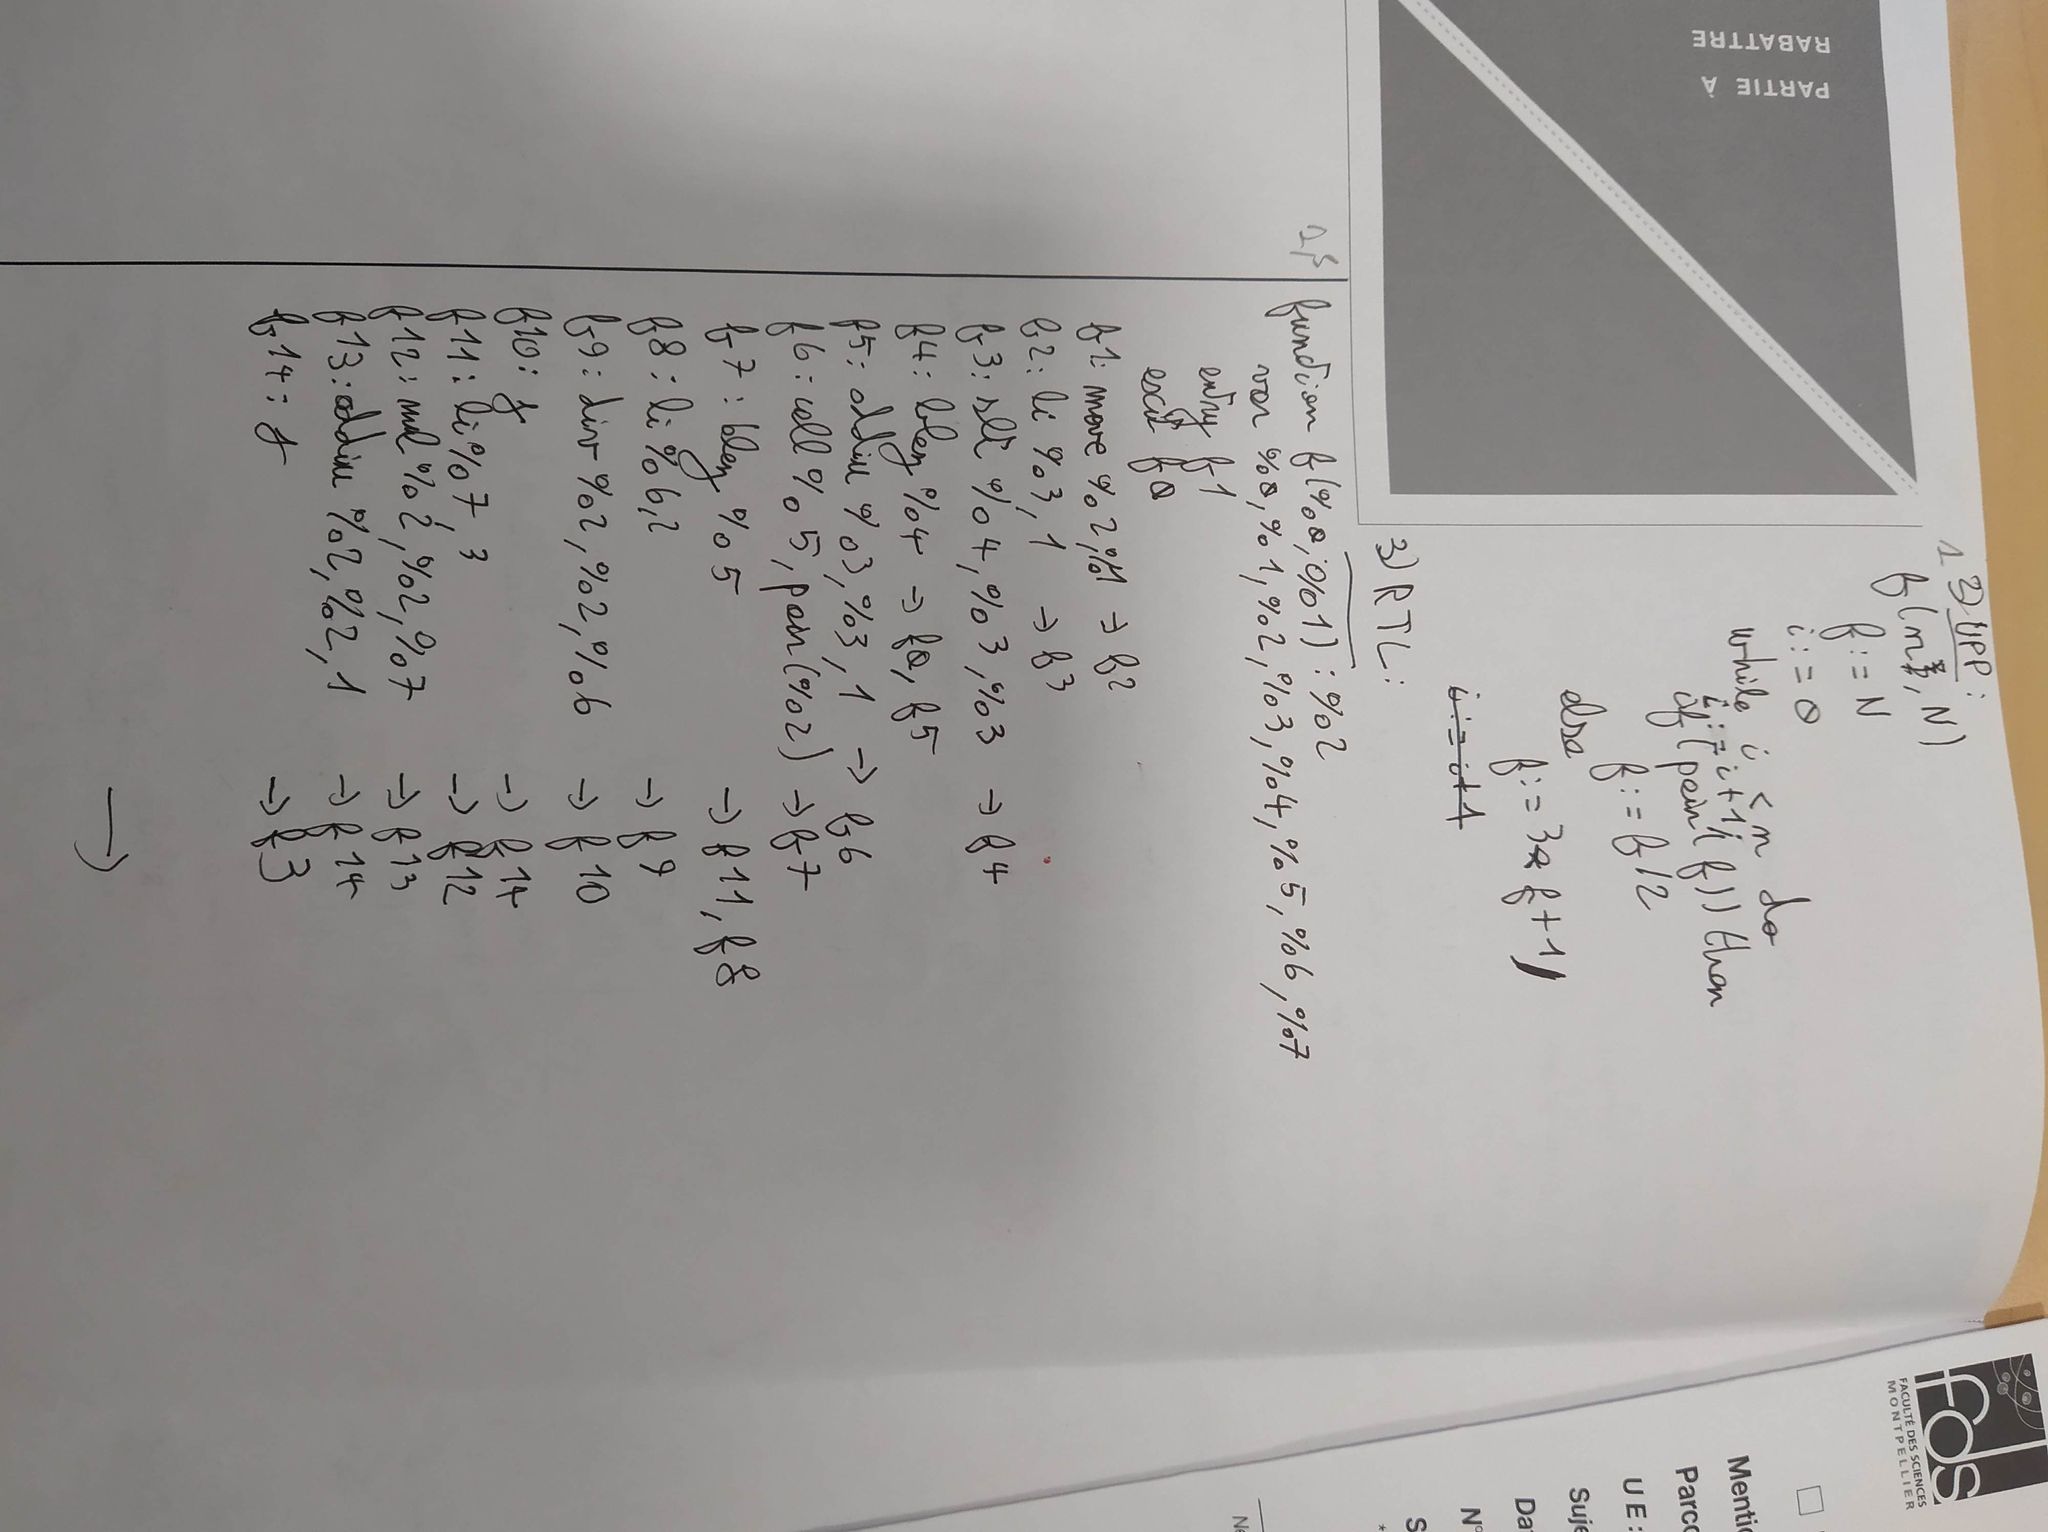 PARTIE À
RABATTRE
1 3) UPP :
f(n, N)
f := N
i := 0
while i < n do
i := i+1;
if (pair(f)) then
f := f/2
else
f := 3* f+1
i := i+1
3) RTL :
function f(%0, %1) : %2
var %0, %1, %2, %3, %4, %5, %6, %7
entry f1
exit f0
f1: move %2, %1 → f2
f2: li %3, 1 → f3
f3: slt %4, %3, %3 → f4
f4: blez %4 → f0, f5
f5: addiu %3, %3, 1 → f6
f6: call %5, pair(%2) → f7
f7: blez %5 → f11, f8
f8: li %6, 2 → f9
f9: div %2, %2, %6 → f10
f10: j → f14
f11: li %7, 3 → f12
f12: mul %2, %2, %7 → f13
f13: addiu %2, %2, 1 → f14
f14: j → f3
→
fds
FACULTÉ DES SCIENCES
MONTPELLIER
Mentio
Parco
UE :
Suje
Dat
N°
S
*
Ne